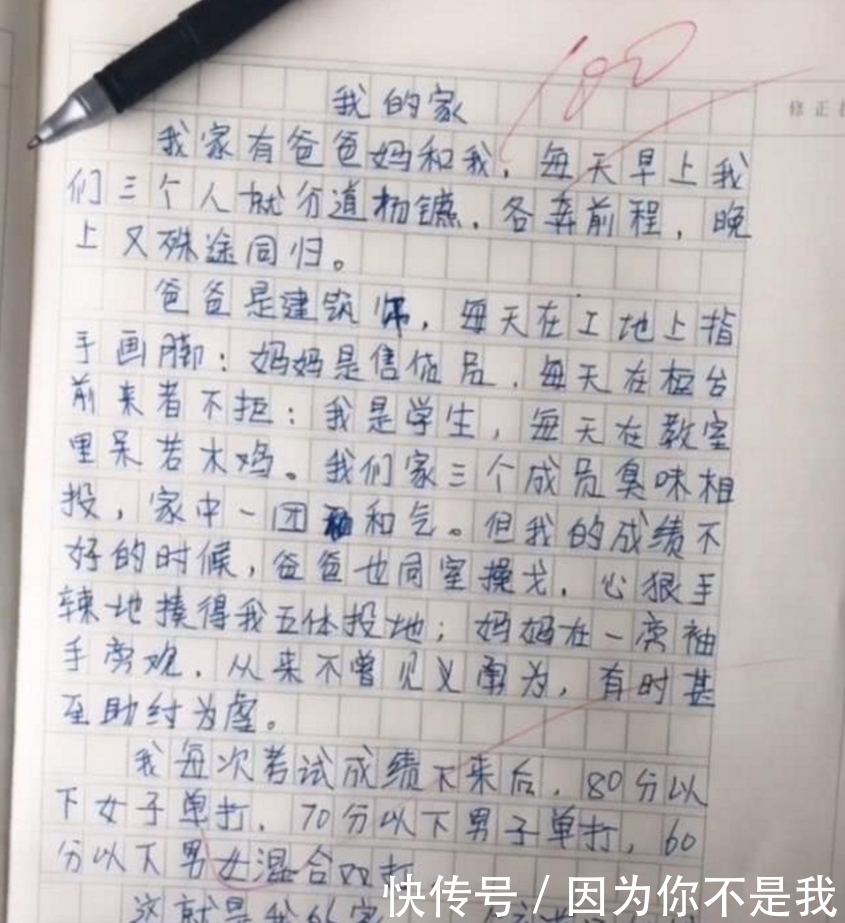 100
修正
我的家
我家有爸爸妈和我，每天早上我
们三个人就分道杨镳，各奔前程，晚
上又殊途同归。
爸爸是建筑师，每天在工地上指
手画脚；妈妈是售货员，每天在柜台
前来者不拒；我是学生，每天在教室
里呆若木鸡。我们家三个成员臭味相
投，家中一团和气。但我的成绩不
好的时候，爸爸也同室操戈，心狠手
辣地揍得我五体投地；妈妈在一旁袖
手旁观，从来不曾见义勇为，有时甚
至助纣为虐。
我每次考试成绩下来后，80分以
下女子单打，70分以下男子单打，60
分以下男女混合双打
这就是我的家
快传号/因为你不是我